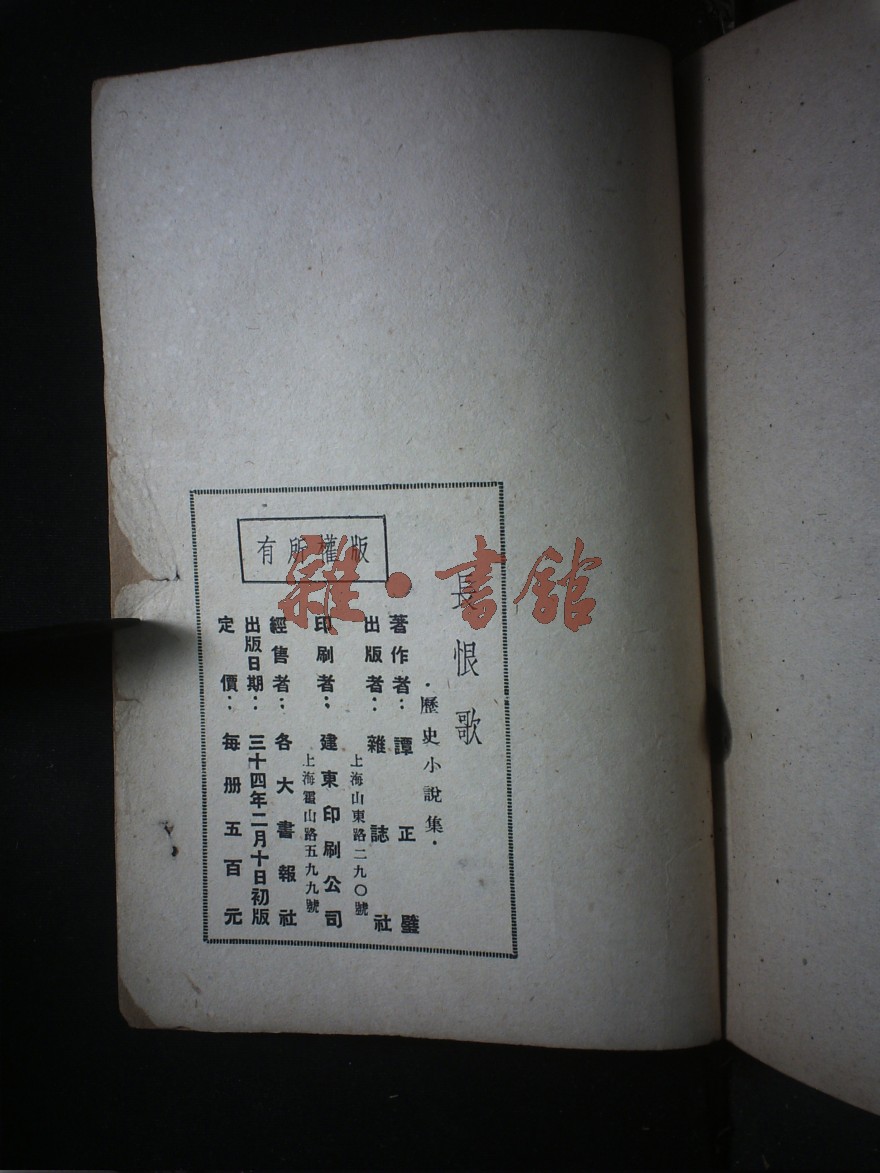 版權所有
長恨歌
·歷史小說集·
著作者：譚正璧
出版者：雜誌社
上海山東路二九〇號
印刷者：建東印刷公司
上海霍山路五九九號
經售者：各大書報社
出版日期：三十四年二月十日初版
定價：每册五百元
雜·書館